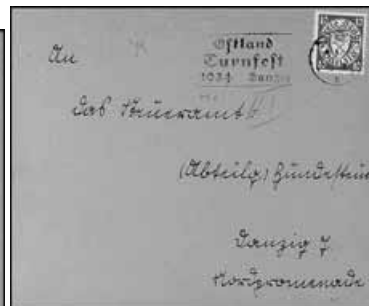 Ostland
Turnfest
1934 Danzig
An
das Steueramt
(Abteilg. Hundesteu
Danzig 7
Nordpromenade